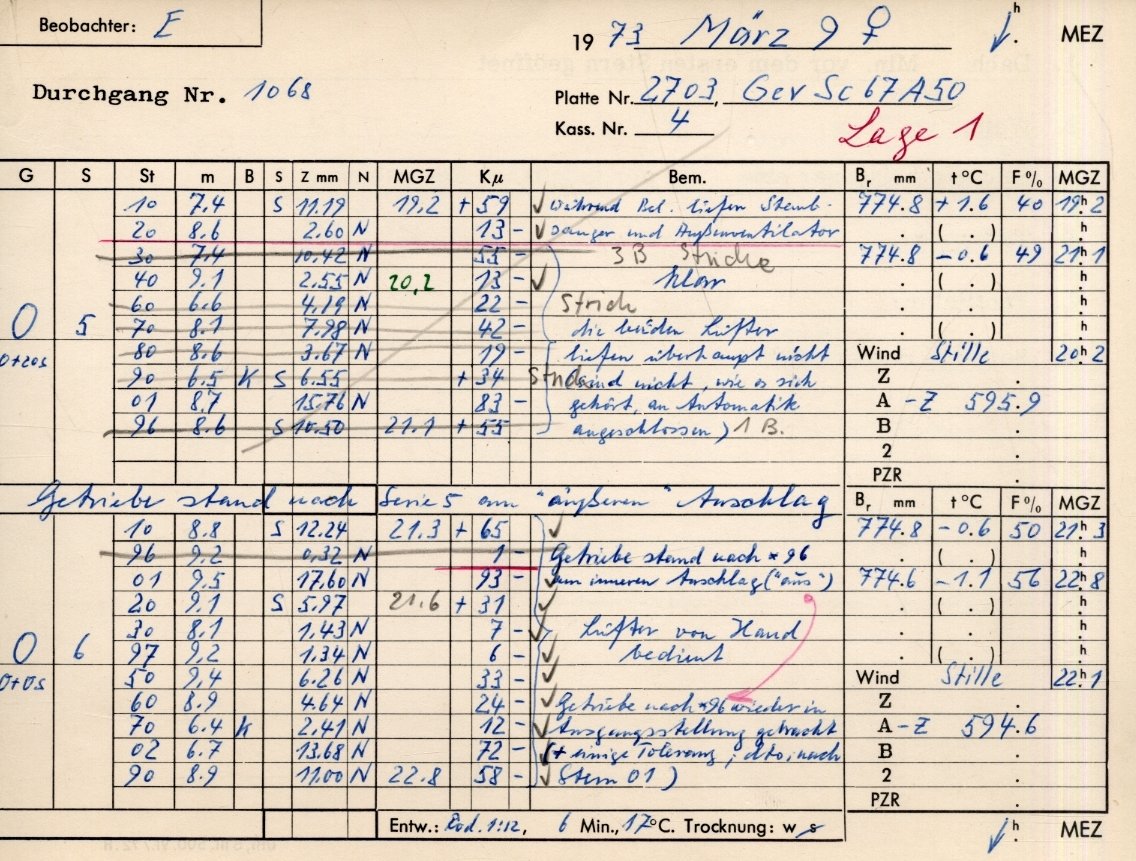 Beobachter: E
19 73 März 9 ♀ h. MEZ
Durchgang Nr. 1068
Platte Nr. 2703, Gev Sc 67 A 50
Kass. Nr. 4
Lage 1
G S St m B S Z mm N MGZ Kμ Bem. Br mm t°C F% MGZ
10 7.4 S 11.19 19.2 + 59 während Bel. liefen 774.8 + 1.6 40 19h 2
20 8.6 2.60 N 13 - und Außenventilator . ( . ) h
30 7.4 10.42 N 55 - 3B Striche 774.8 - 0.6 49 21h 1
40 9.1 2.55 N 20,2 13 - klar . ( . ) h
60 6.6 4.19 N 22 - Strich . h
0 5 70 8.1 7.98 N 42 - die beiden Lüfter . ( . ) h
0+20s 80 8.6 3.67 N 19 - liefen überhaupt nicht Wind Stille 20h 2
90 6.5 K S 6.55 + 34 Strich (sind nicht, wie es sich Z .
01 8.7 15.76 N 83 - gehört, an Automatik A - Z 595.9
96 8.6 S 10.50 21.1 + 55 angeschlossen) 1 B. B .
2 .
PZR .
Getriebe stand nach Serie 5 am "äußeren" Anschlag Br mm t°C F% MGZ
10 8.8 S 12.24 21.3 + 65 774.8 - 0.6 50 21h 3
96 9.2 0.32 N 1 - Getriebe stand nach * 96 . ( . ) h
01 9.5 17.60 N 93 - am inneren Anschlag ("aus") 774.6 - 1.1 56 22h 8
20 9.1 S 5.97 21.6 + 31 . ( . ) h
30 8.1 1.43 N 7 - Lüfter von Hand . h
0 6 97 9.2 1.34 N 6 - bedient . ( . ) h
0+0s 50 9.4 6.26 N 33 - Wind Stille 22h 1
60 8.9 4.64 N 24 - Getriebe nach *96 wieder in Z .
70 6.4 K 2.41 N 12 - Ausgangsstellung gebracht A - Z 594.6
02 6.7 13.68 N 72 - (+ einige Toleranz; dto, nach B .
90 8.9 11.00 N 22.8 58 - Stern 01) 2 .
PZR .
Entw.: Rod. 1:12, 6 Min., 17°C. Trocknung: w s h. MEZ